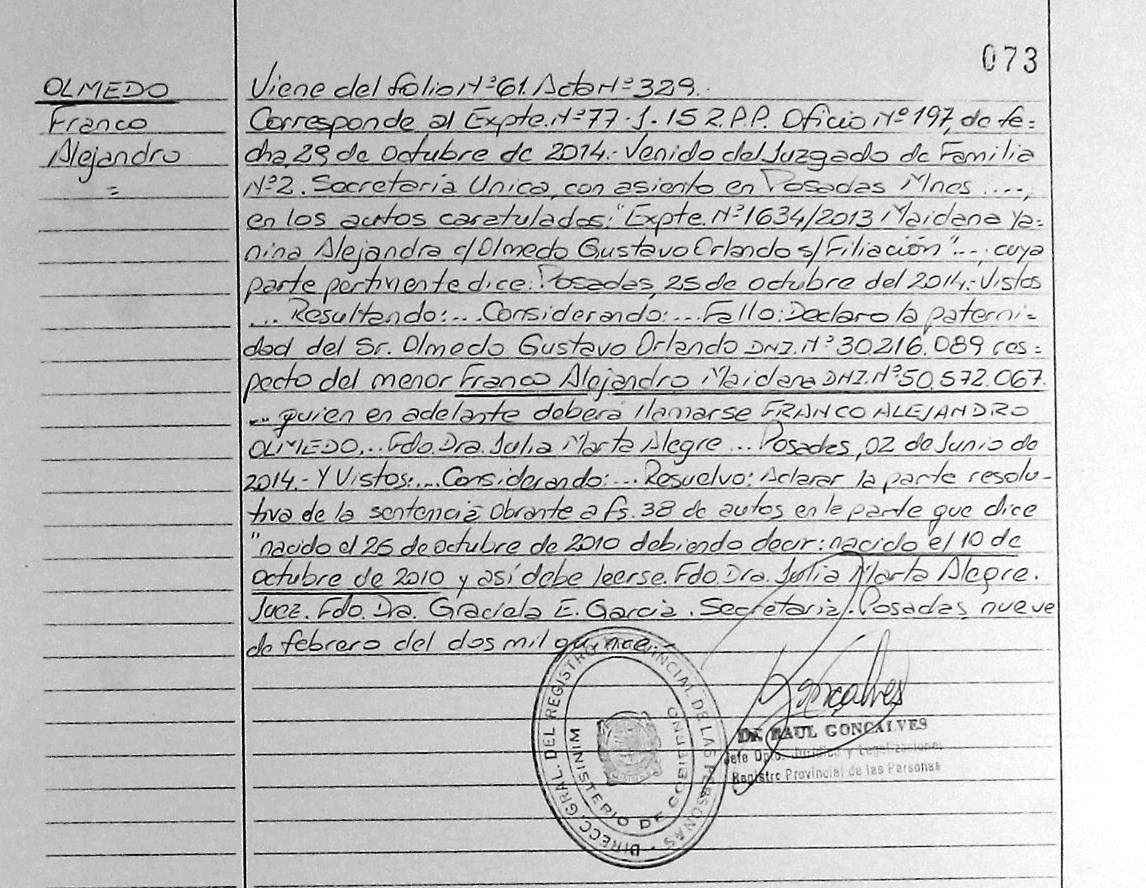 073
OLMEDO
Franco
Alejandro
=
Viene del folio Nº 61. Acta Nº 329.
Corresponde al Expte. Nº 77. J. 15 R.P.P. Oficio Nº 197, de fe=
cha 29 de Octubre de 2014.- Venido del Juzgado de Familia
Nº2. Secretaría Unica, con asiento en Posadas Mnes ....,
en los autos caratulados: "Expte. Nº 1634/2013 Maidana Ya=
nina Alejandra c/ Olmedo Gustavo Orlando s/ Filiación"..., cuya
parte pertinente dice: Posadas, 25 de octubre del 2014.- Vistos
... Resultando:... Considerando:... Fallo: Declaro la paterni=
dad del Sr. Olmedo Gustavo Orlando DNI. Nº 30216.089 res=
pecto del menor Franco Alejandro Maidana DNI. Nº 50.572.067.
... quien en adelante deberá llamarse FRANCO ALEJANDRO
OLMEDO... Fdo. Dra. Julia Marta Alegre ... Posadas, 02 de Junio de
2014.- Y Vistos:... Considerando:... Resuelvo: Aclarar la parte resolu-
tiva de la sentencia obrante a fs. 38 de autos en la parte que dice
"nacido el 26 de octubre de 2010 debiendo decir: nacido el 10 de
octubre de 2010 y así debe leerse. Fdo. Dra. Julia Marta Alegre.
Juez. Fdo. Dra. Graciela E. Garcia. Secretaria. Posadas, nueve
de febrero del dos mil quince.
DIRECC. GRAL. DEL REGISTRO PROVINCIAL DE LAS PERSONAS
MINISTERIO DE GOBIERNO
Gonçalves
Dr. RAUL GONCALVES
Jefe Dpto. Jurídico y Legalizaciones
Registro Provincial de las Personas